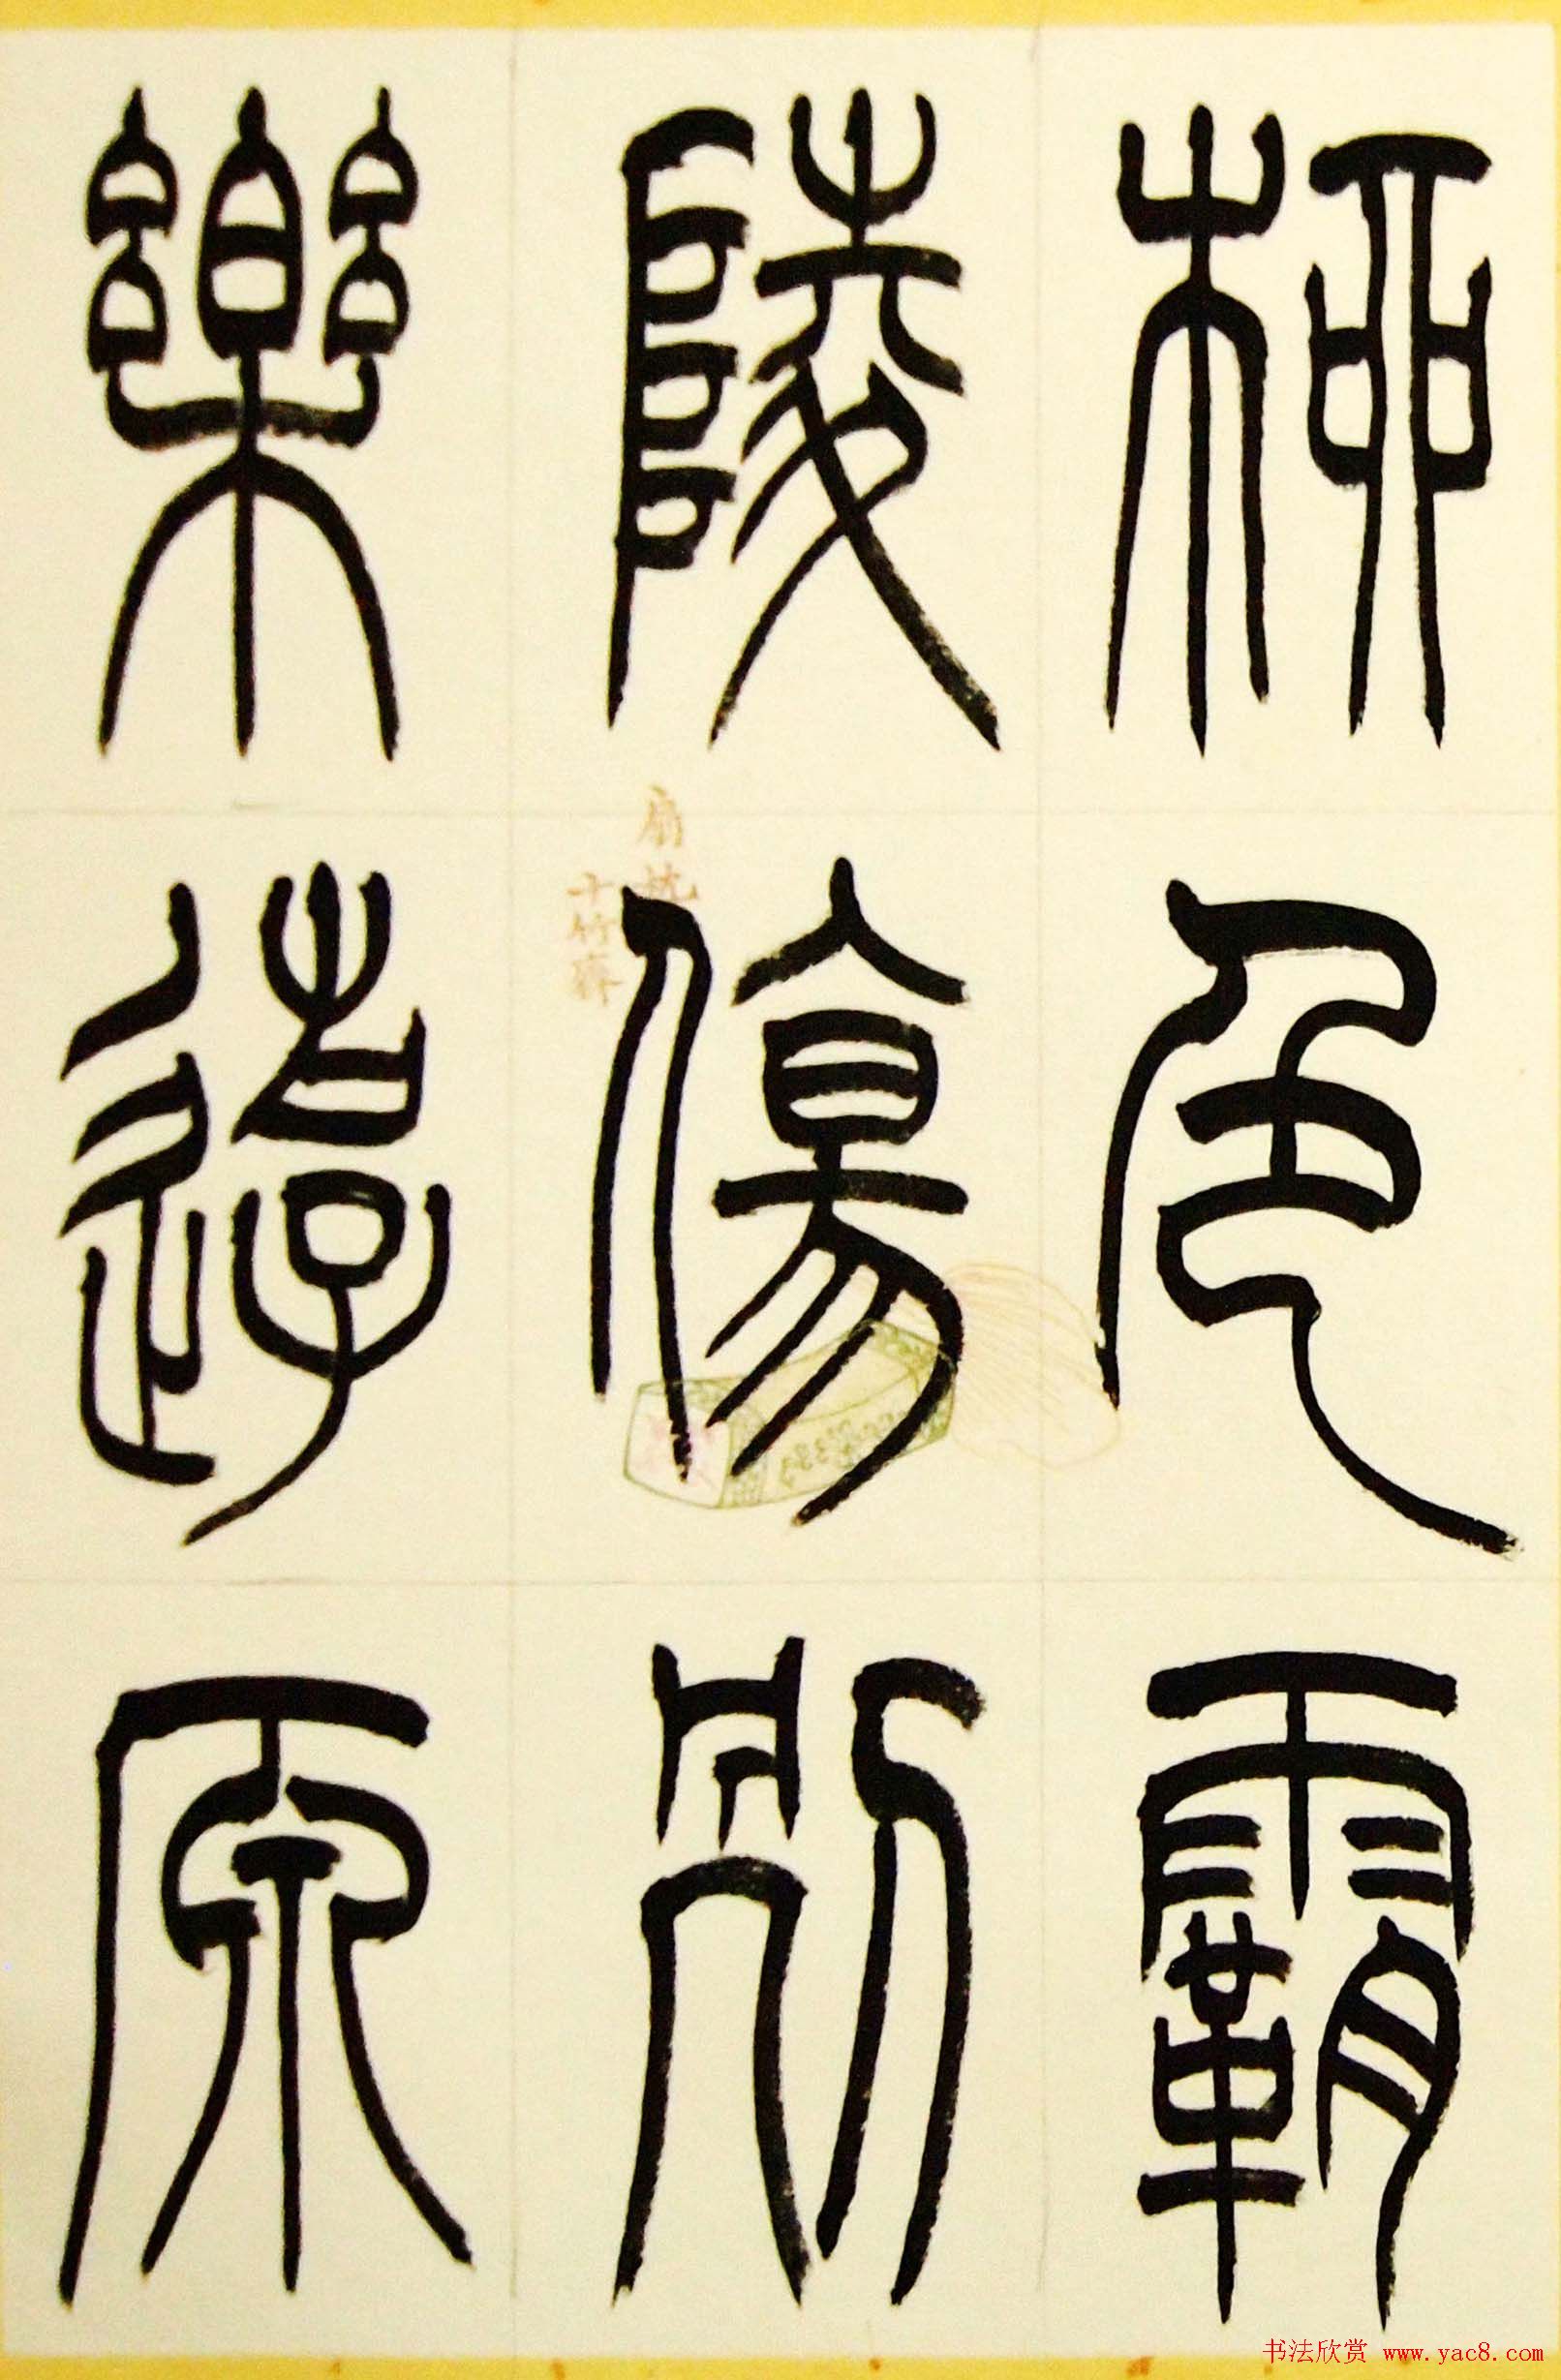 柳色霸
陵傷別
樂遊原
扇枕
十竹齋
书法欣赏 www.yac8.com